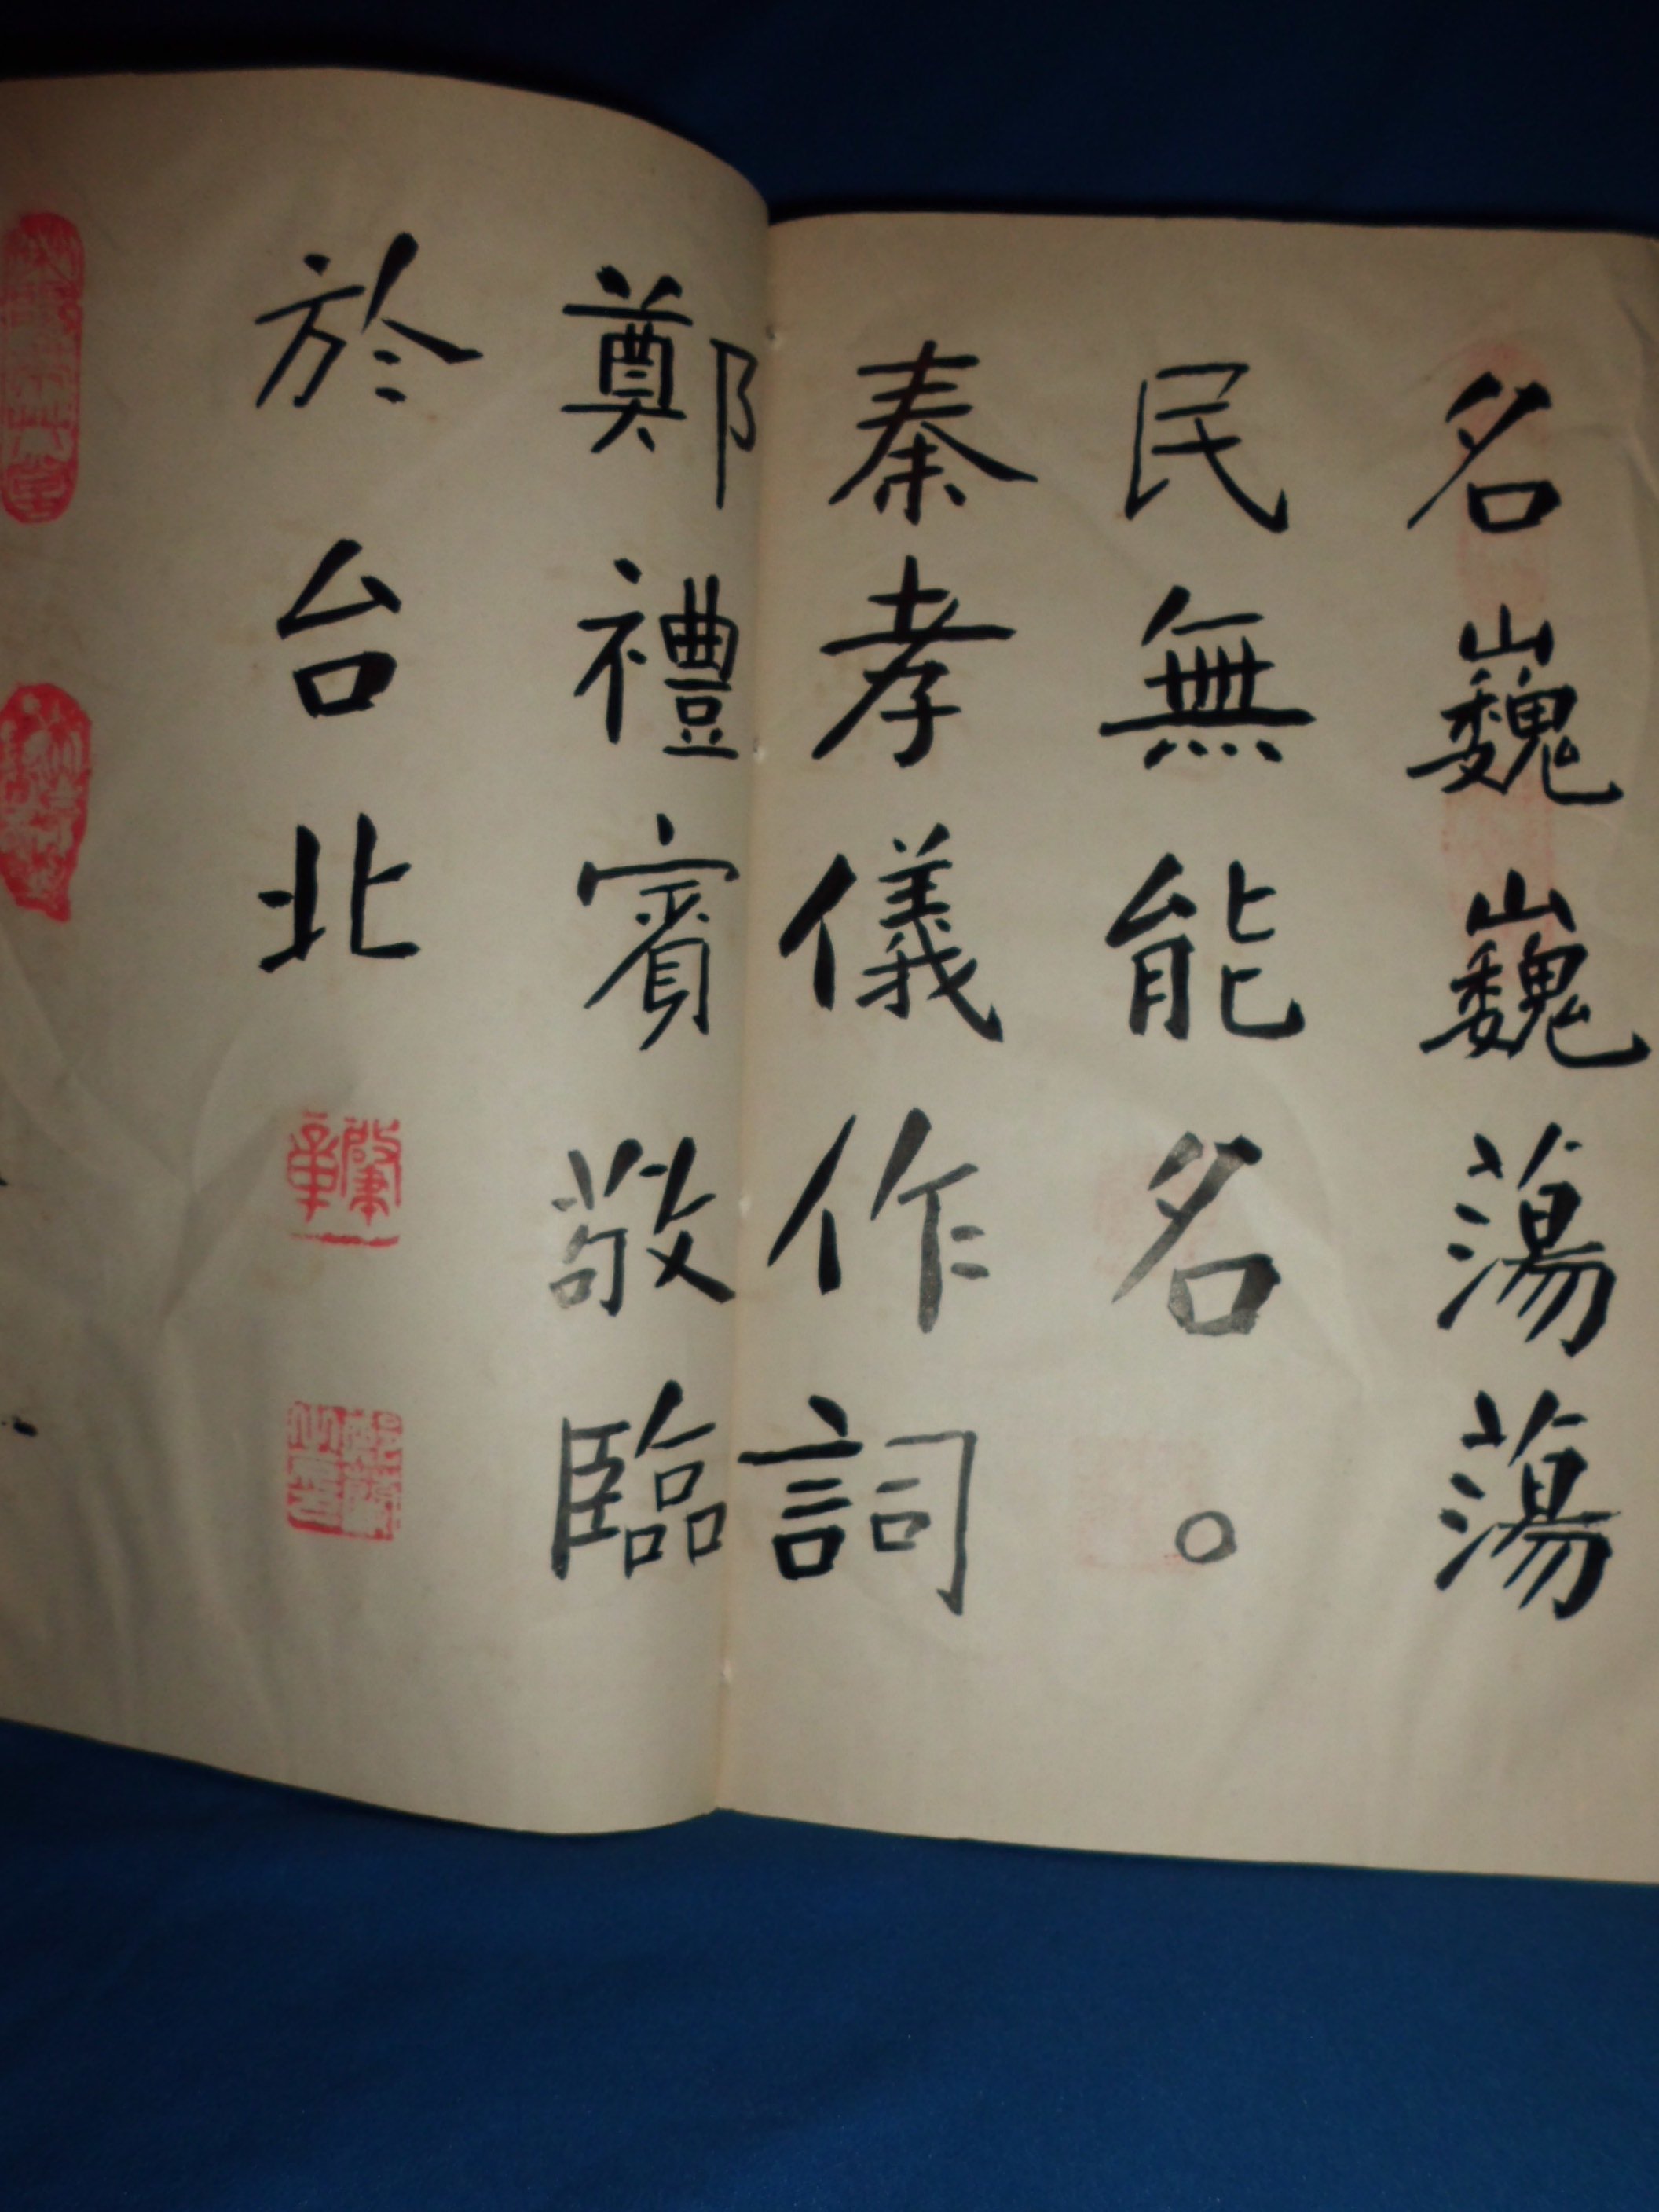 名巍巍蕩蕩
民無能名。
秦孝儀作詞
鄭禮賓敬臨
於台北